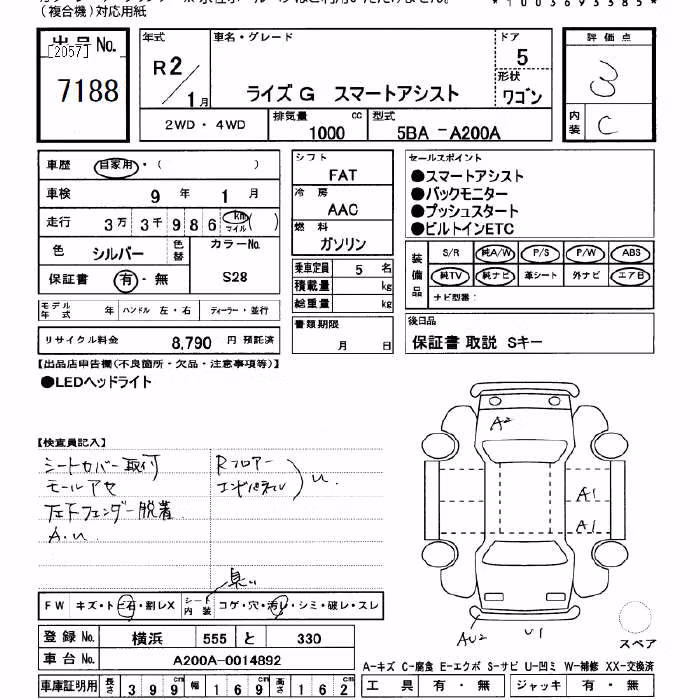 (複合機)対応用紙
*1003693385*
出品No.
[2057]
7188
年式
R2/1月
車名・グレード
ライズG スマートアシスト
ドア
5
形状
ワゴン
評価点
3
内装
C
2WD・4WD
排気量
1000 cc
型式
5BA-A200A
車歴 自家用・( )
車検 9年 1月
走行 3万3千986 km マイル ( )
色 シルバー 色替
カラーNo.
S28
保証書 有・無
モデル年式 年 ハンドル 左・右 ディーラー・並行
リサイクル料金 8,790 円 預託済
シフト
FAT
冷房
AAC
燃料
ガソリン
乗車定員 5 名
積載量 kg
総重量 kg
書類期限
月 日
セールスポイント
●スマートアシスト
●バックモニター
●プッシュスタート
●ビルトインETC
装備品
S/R 純A/W P/S P/W ABS
純TV 純ナビ 革シート 外ナビ エアB
ナビ型番:
後日品
保証書 取説 Sキー
【出品店申告欄(不良箇所・欠品・注意事項等)】
●LEDヘッドライト
【検査員記入】
シートカバー取付
モールアセ
左フフェンダー脱着
A.U
Rフロアー
エンドパネル
U
A2
A1
A1
AU2
U1
臭い
FW キズ・トビ石・割レX
シート内装 コゲ・穴・汚レ・シミ・破レ・スレ
スペア
登録No. 横浜 555 と 330
車台No. A200A-0014892
車庫証明用 長さ 399cm 幅 169cm 高さ 162cm
A-キズ C-腐食 E-エクボ S-サビ U-凹ミ W-補修 XX-交換済
工具 有・無 ジャッキ 有・無